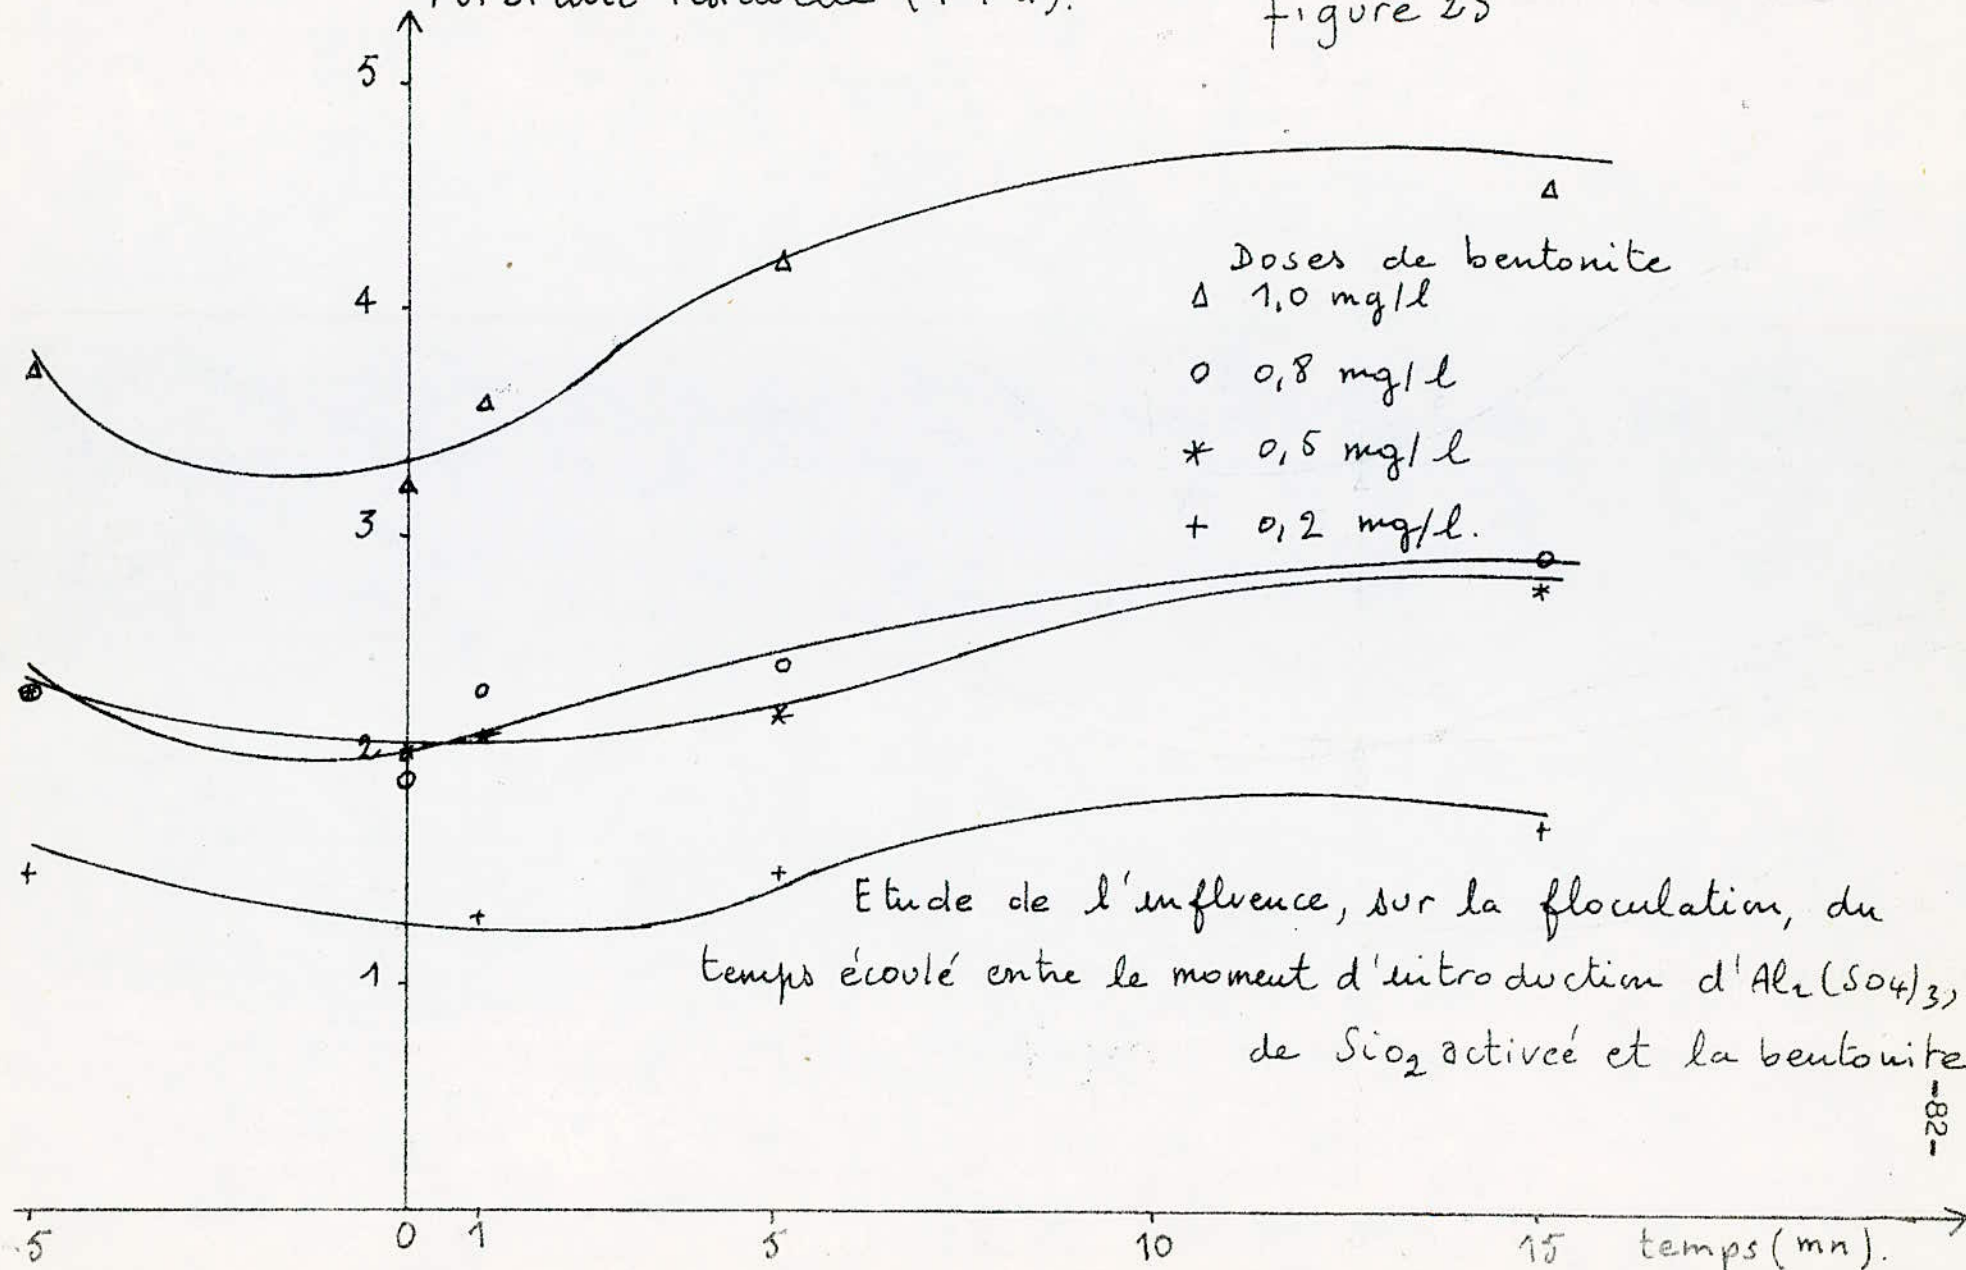 figure 25
5
Doses de bentonite
4
Δ 1,0 mg/l
o 0,8 mg/l
* 0,5 mg/l
3
+ 0,2 mg/l.
2
Etude de l'influence, sur la floculation, du
1
temps écoulé entre le moment d'introduction d'Al2(SO4)3,
de SiO2 activeé et la bentonite
-82-
-5 0 1 5 10 15 temps (mn).